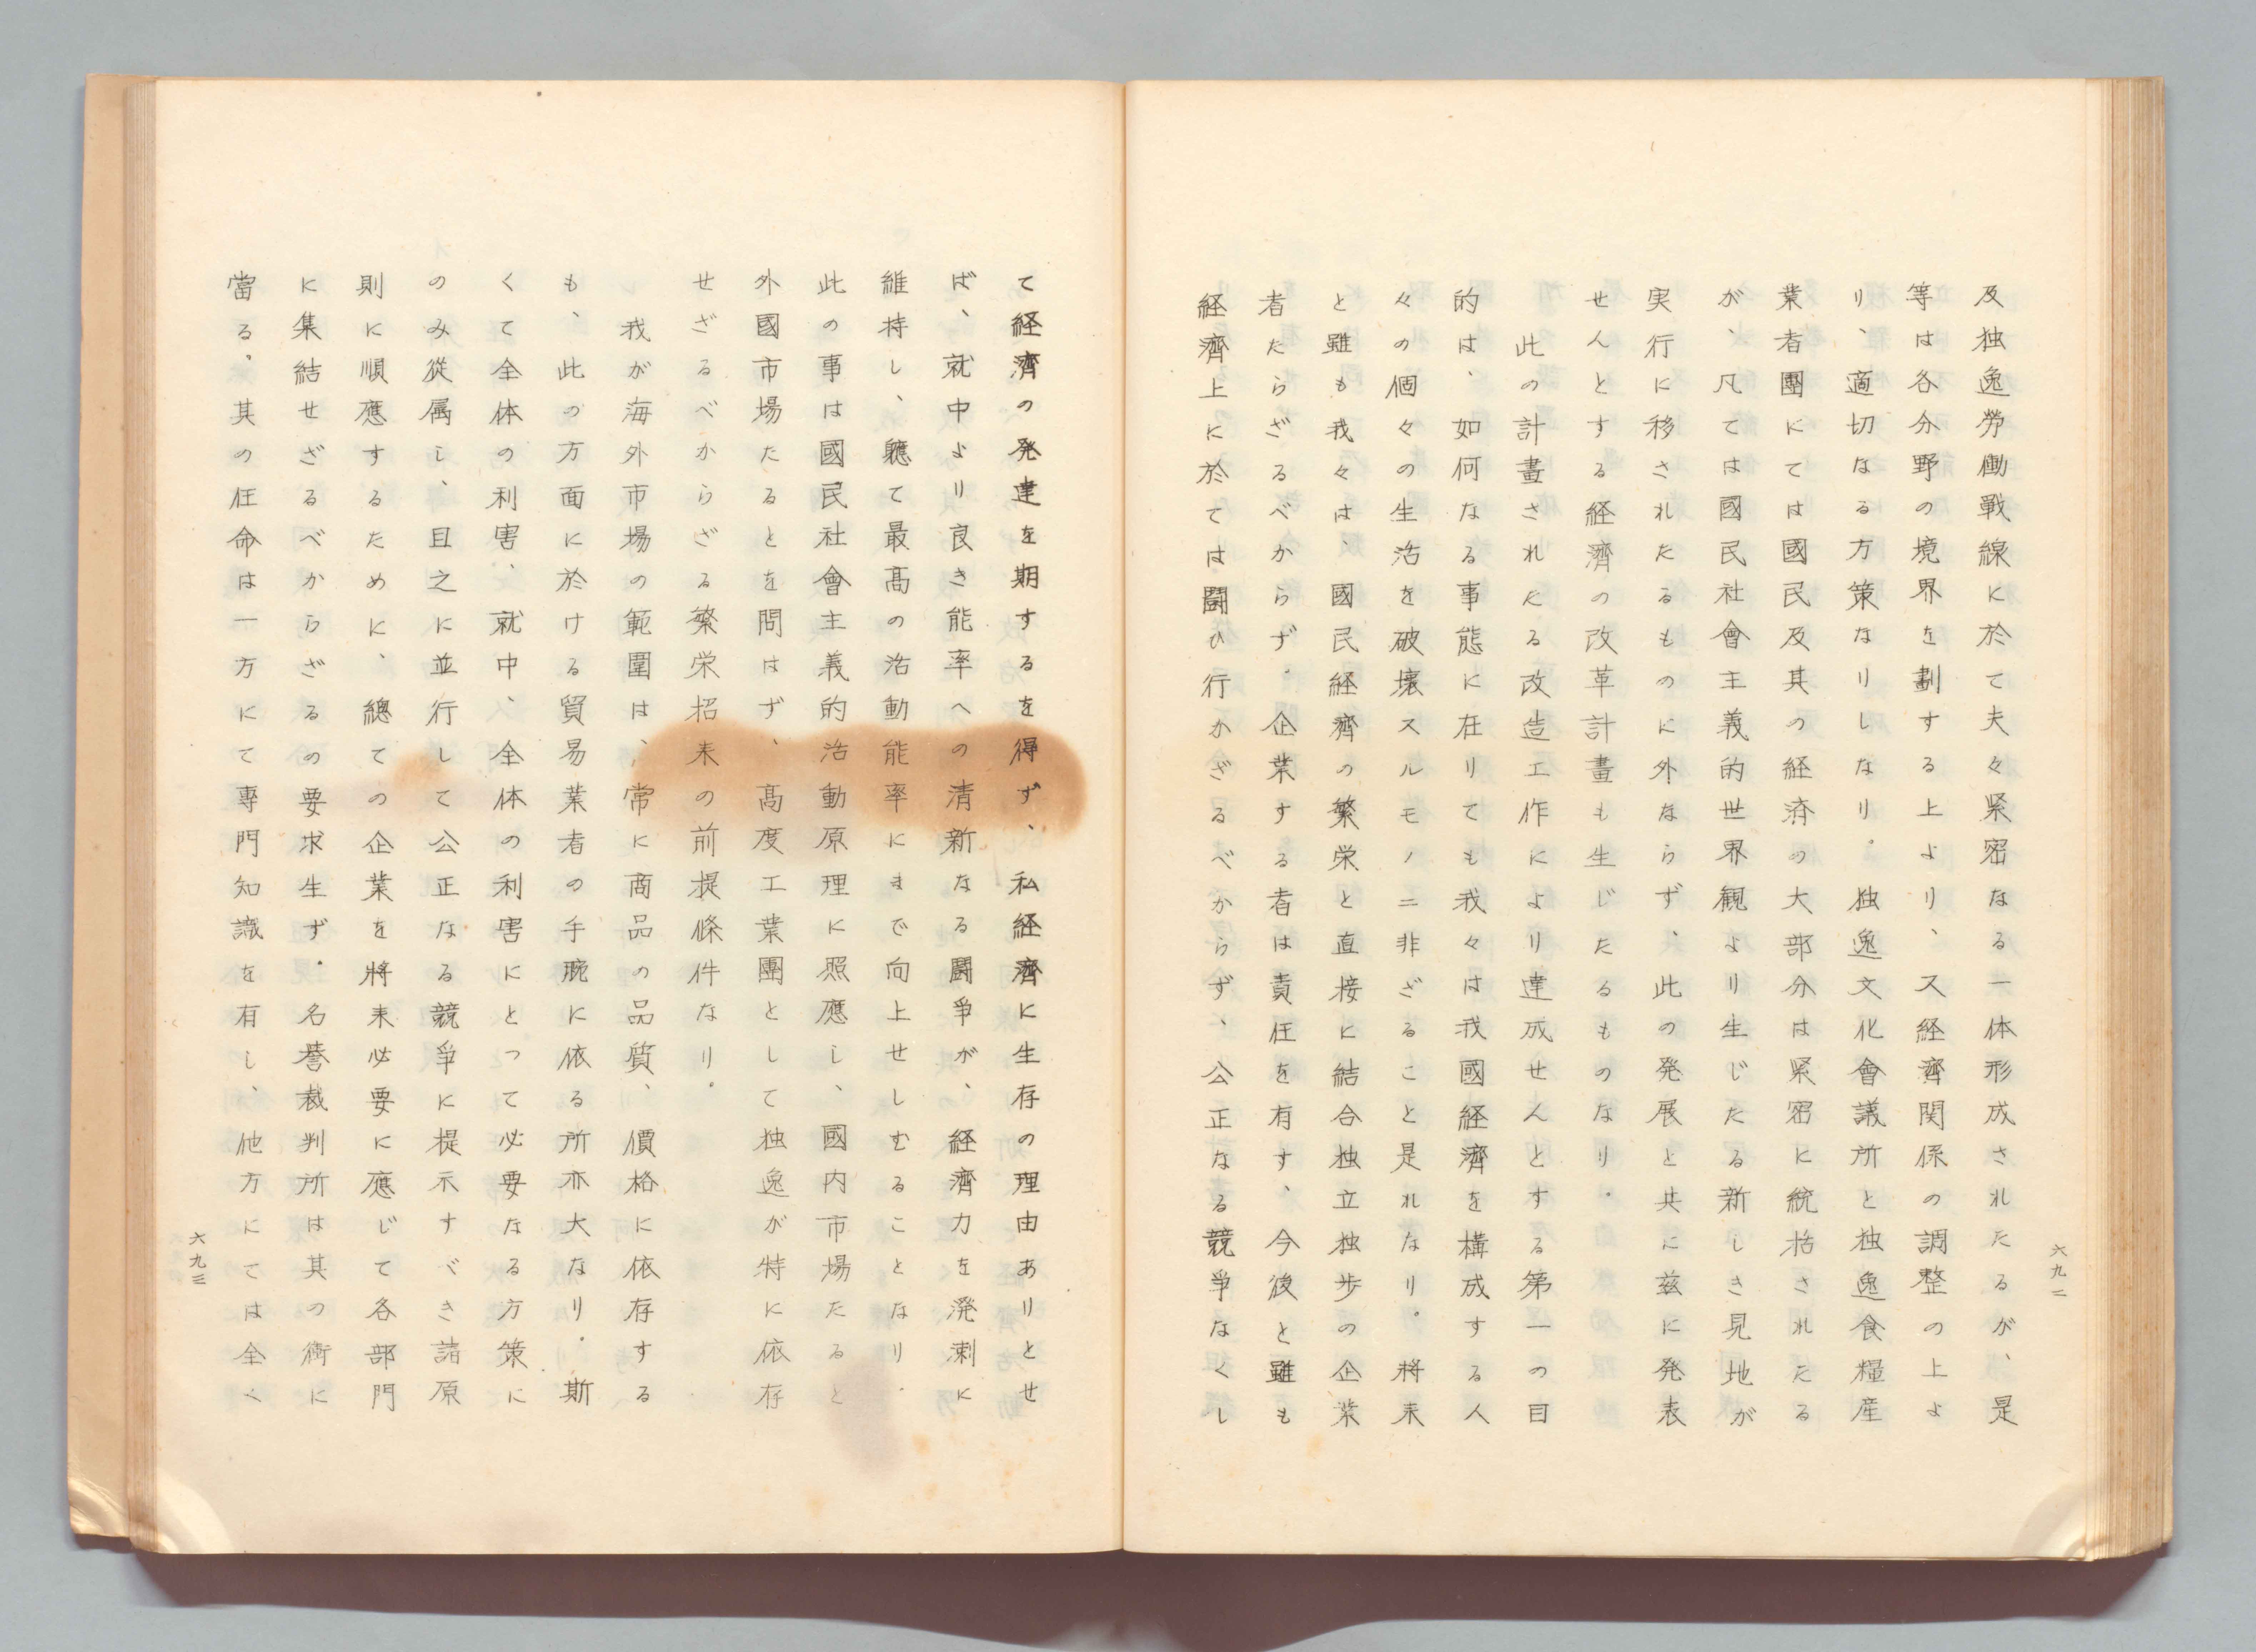 及独逸勞働戰線に於て夫々緊密なる一体形成されたるが、是
等は各分野の境界を劃する上より、又経濟関係の調整の上よ
り、適切なる方策なりしなり。独逸文化會議所と独逸食糧産
業者團にては國民及其の経済の大部分は緊密に統括されたる
が、凡ては國民社會主義的世界観より生じたる新しき見地が
実行に移されたるものに外ならず、此の発展と共に茲に発表
せんとする経濟の改革計畫も生じたるものなり。
此の計畫されたる改造工作により達成せんとする第一の目
的は、如何なる事態に在りても我々は我國経濟を構成する人
々の個々の生活を破壊スルモノニ非ざること是れなり。將来
と雖も我々は、國民経濟の繁栄と直接に結合独立独歩の企業
者たらざるべからず。企業する者は責任を有す、今後と雖も
経濟上に於ては闘ひ行かざるべからず、公正なる競爭なくし
六九二
て経濟の発達を期するを得ず、私経濟に生存の理由ありとせ
ば、就中より良き能率への清新なる闘爭が、経濟力を溌溂に
維持し、軈て最高の活動能率にまで向上せしむることなり。
此の事は國民社會主義的活動原理に照應し、國内市場たると
外國市場たるとを問はず、高度工業團として独逸が特に依存
せざるべからざる繁栄招来の前提條件なり。
我が海外市場の範圍は、常に商品の品質、價格に依存する
も、此の方面に於ける貿易業者の手腕に依る所亦大なり。斯
くて全体の利害、就中、全体の利害にとって必要なる方策に
のみ從属し、且之に並行して公正なる競爭に提示すべき諸原
則に順應するために、總ての企業を將来必要に應じて各部門
に集結せざるべからざるの要求生ず。名誉裁判所は其の衝に
當る。其の任命は一方にて專門知識を有し、他方にては全く
六九三